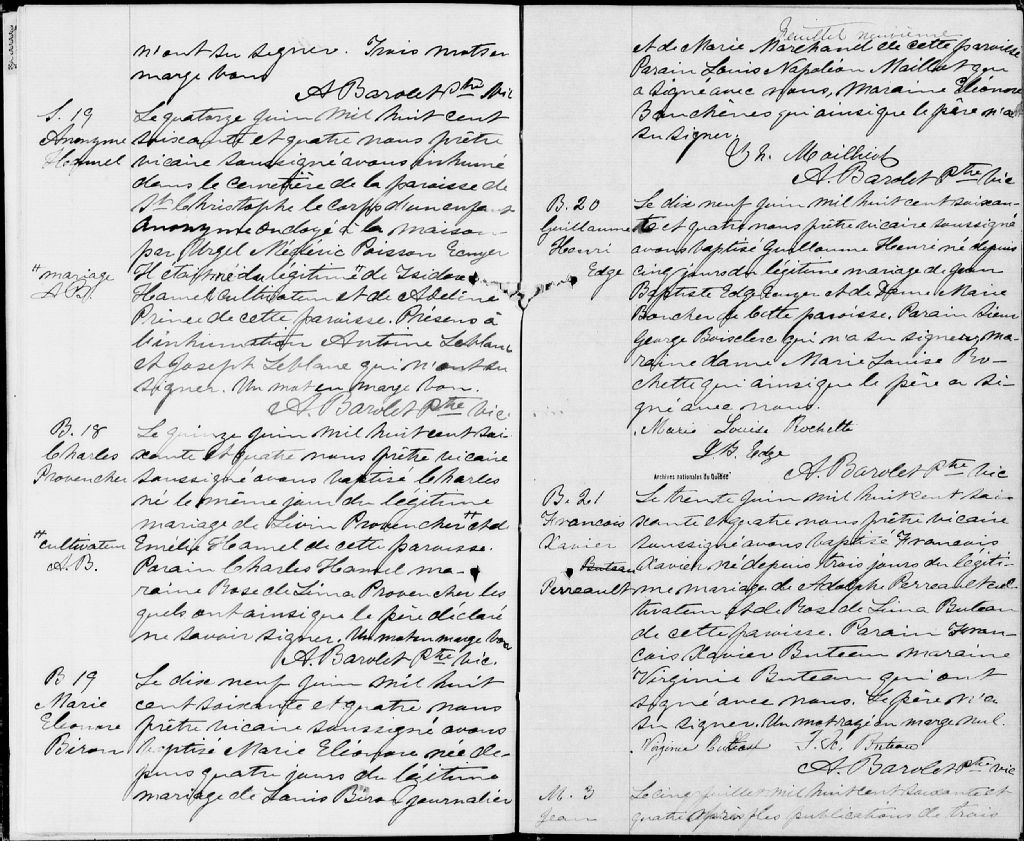 n'ont su signer. Trois mots en
marge bons
A Barolet Ptre Vic
S. 19
Anonyme
Hamel
Le quatorze juin mil huit cent
soixante et quatre nous prêtre
vicaire soussigné avons inhumé
dans le cemetière de la paroisse de
St Christophe le corps d'un enfant
Anonyme ondoyé à la maison
par Urgel Médéric Poisson Ecuyer
"mariage
A B.
Il était né du légitime " de Isidore
Hamel cultivateur et de Adeline
Prince de cette paroisse. Presens à
l'inhumation Antoine Leblanc
et Joseph Leblanc qui n'ont su
signer. Un mot en marge bon.
A. Barolet Ptre Vic.
B. 18
Charles
Provencher
Le quinze juin mil huit cent soi-
xante et quatre nous prêtre vicaire
soussigné avons baptisé Charles
né le même jour du légitime
mariage de Livin Provencher " et de
"cultivateur
A. B.
Emélie Hamel de cette paroisse.
Parain Charles Hamel ma-
raine Rose de Lima Provencher les
quels ont ainsi que le père déclaré
ne savoir signer. Un mot en marge bon
A. Barolet Ptre Vic.
B 19
Marie
Eleonore
Biron
Le dix neuf juin mil huit
cent soixante et quatre nous
prêtre vicaire soussigné avons
baptisé Marie Eléonore née de-
puis quatre jours du légitime
mariage de Louis Biron journalier
Feuillet neuvième
et de Marie Marchand de cette paroisse
Parain Louis Napoléon Maillot qui
a signé avec nous, Maraine Eléonore
Bouchènes qui ainsi que le père n'a
su signer.
L. N. Mailhiot
A. Barolet Ptre Vic
B. 20
Guillaume
Henri
Edge
Le dix neuf juin mil huit cent soixan-
te et quatre nous prêtre vicaire soussigné
avons baptisé Guillaume Henri né depuis
cinq jours du légitime mariage de Jean
Baptiste Edge Ecuyer et de Dame Marie
Boucher de cette paroisse. Parain Sieur
George Boisclerc qui n'a su signer, ma-
raine dame Marie Louise Ro-
chette qui ainsi que le père a si-
gné avec nous.
Marie Louise Rochette
J B. Edge
A Barolet Ptre Vic
Archives nationales du Québec
B. 21
Francois
Xavier
Buteau
Perreault
Le trente juin mil huit cent soix
xante et quatre nous prêtre vicaire
soussigné avons baptisé Francois
Xavier né depuis trois jours du légiti-
me mariage de Adolphe Perreault cul-
tivateur et de Rose de Lima Buteau
de cette paroisse. Parain Fran-
cois Xavier Buteau maraine
Virginie Buteau qui ont
signé avec nous. Le père n'a
su signer. Un mot rayé en marge nul.
Virginie Buteau F. X. Buteau
A. Barolet Ptre Vic
M. 3
Jean
Le cinq juillet mil huit cent soixante et
quatre après les publications de trois